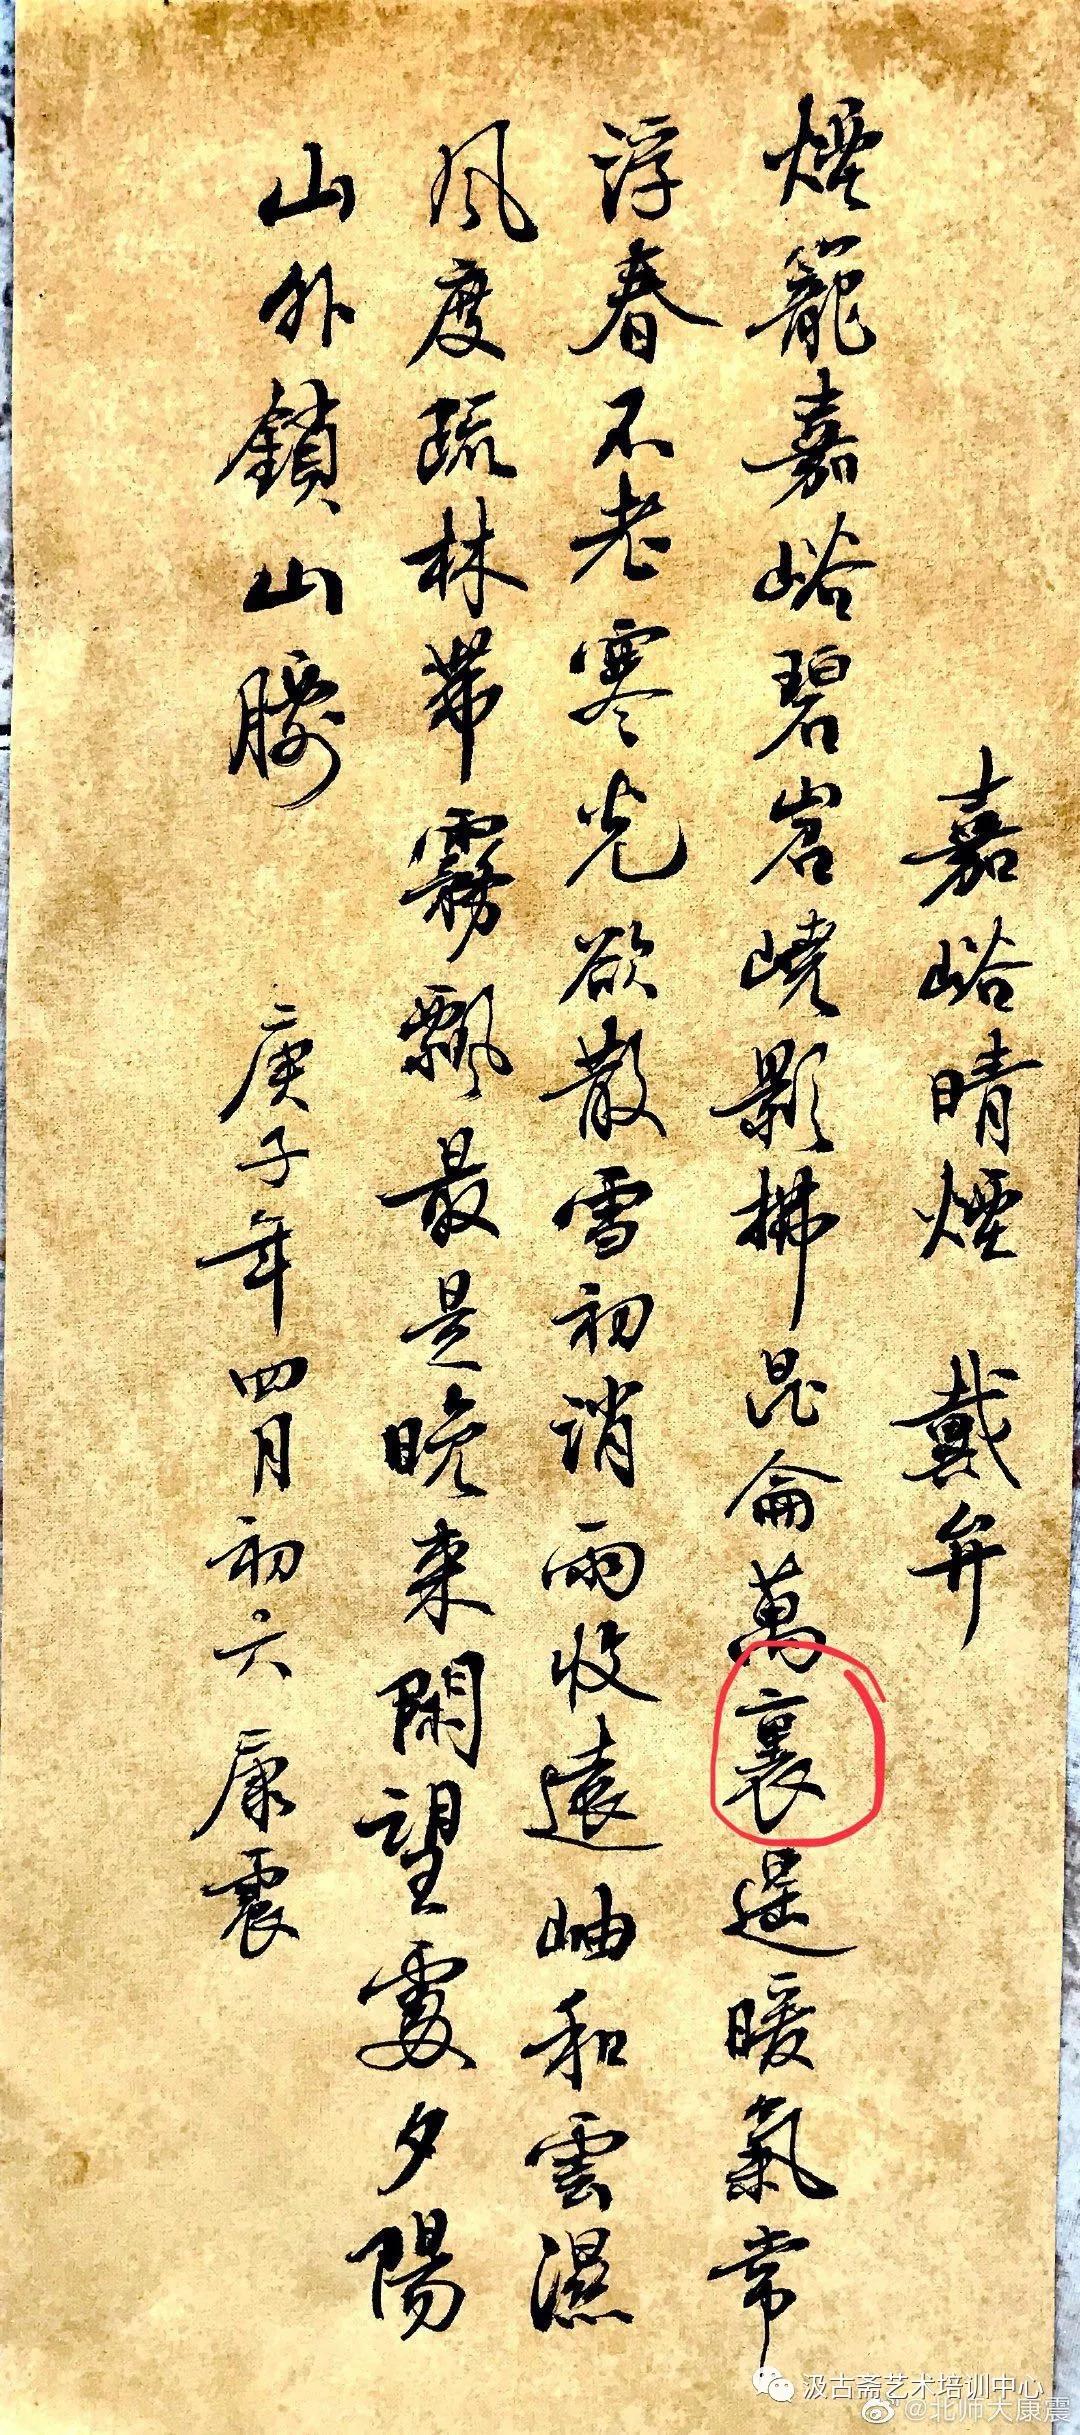 嘉峪晴煙 戴弁
煙籠嘉峪碧岧嶢影拂昆侖萬裏遥暖氣常
浮春不老寒光欲散雪初消雨收遠岫和雲濕
風度疏林帶霧飄最是晚来閑望處夕陽
山外鎖山腰 庚子年四月初六 康震
汲古斋艺术培训中心
@北师大康震